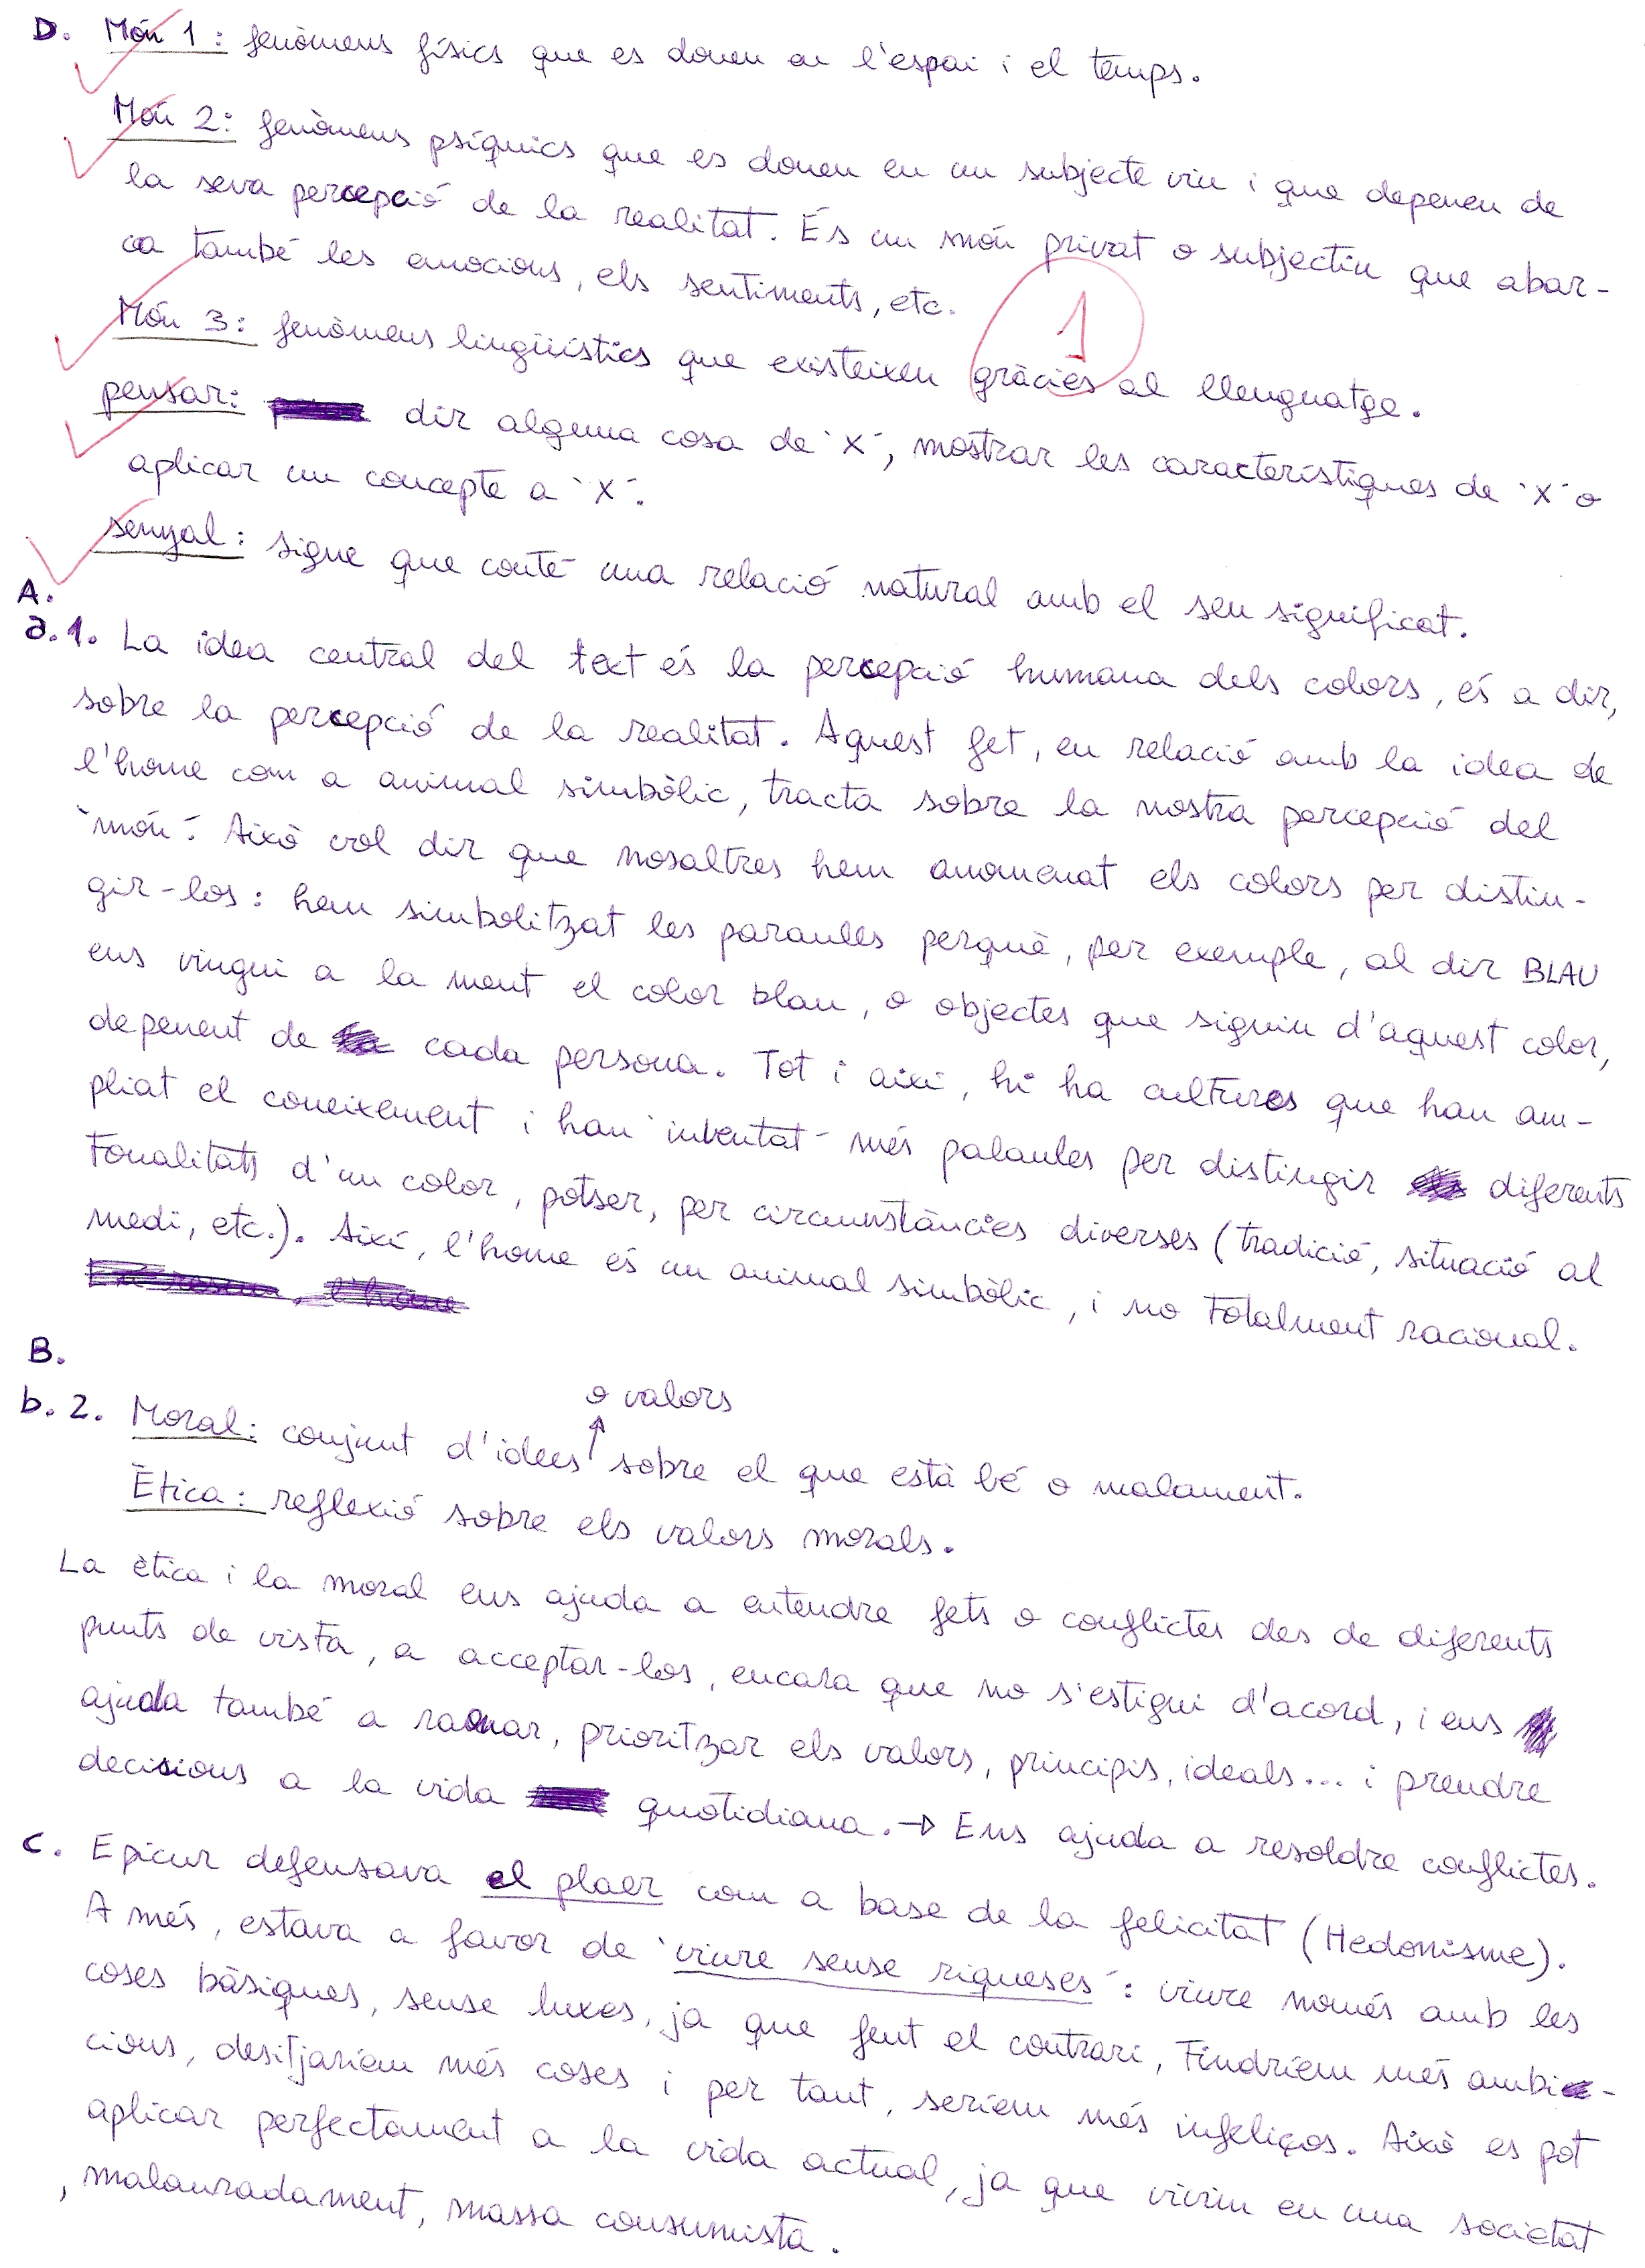 D. Món 1: fenòmens físics que es donen en l'espai i el temps.
Món 2: fenòmens psíquics que es donen en un subjecte viu i que depenen de
la seva percepció de la realitat. És un món privat o subjectiu que abar-
ca també les emocions, els sentiments, etc.
1
Món 3: fenòmens lingüístics que existeixen gràcies al llenguatge.
pensar: dir alguna cosa de `X´, mostrar les característiques de `X´ o
aplicar un concepte a `X´.
senyal: signe que conté una relació natural amb el seu significat.
A.
a.1. La idea central del text és la percepció humana dels colors, és a dir,
sobre la percepció de la realitat. Aquest fet, en relació amb la idea de
l'home com a animal simbòlic, tracta sobre la nostra percepció del
`món´. Això vol dir que nosaltres hem anomenat els colors per distin-
gir-los: hem simbolitzat les paraules perquè, per exemple, al dir BLAU
ens vingui a la ment el color blau, o objectes que siguin d'aquest color,
depenent de cada persona. Tot i així, hi ha cultures que han am-
pliat el coneixement i han `inventat´ més palaules per distingir diferents
tonalitats d'un color, potser, per circumstàncies diverses (tradició, situació al
medi, etc.). Així, l'home és un animal simbòlic, i no totalment racional.
B.
o valors
b.2. Moral: conjunt d'idees ↑ sobre el que està bé o malament.
Ètica: reflexió sobre els valors morals.
La ètica i la moral ens ajuda a entendre fets o conflictes des de diferents
punts de vista, a acceptar-los, encara que no s'estigui d'acord, i ens
ajuda també a raonar, prioritzar els valors, principis, ideals... i prendre
decisions a la vida quotidiana. → Ens ajuda a resoldre conflictes.
C. Epicur defensava el plaer com a base de la felicitat (Hedonisme).
A més, estava a favor de `viure sense riqueses´: viure només amb les
coses bàsiques, sense luxes, ja que fent el contrari, tindríem més ambi-
cions, desitjaríem més coses i per tant, seríem més infeliços. Això es pot
aplicar perfectament a la vida actual, ja que vivim en una societat
, malauradament, massa consumista.